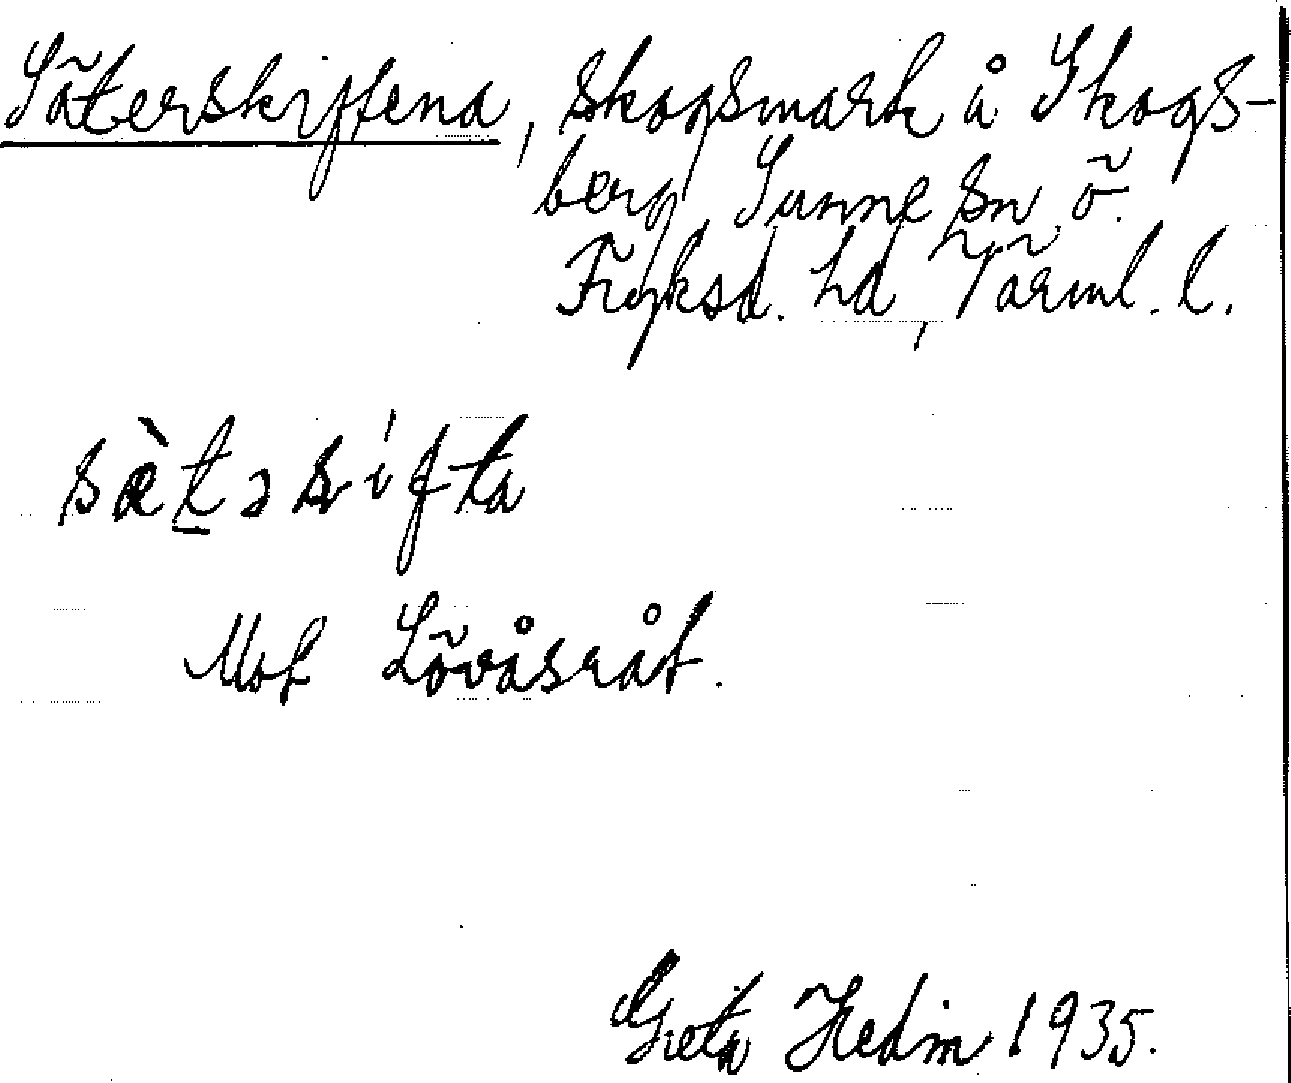 Säterskiftena, skogsmark å Skogs-
berg Sunne sn, ö.
Fryksd. hd, Värml. l.
sæ̀təʂifta
Mot Lövåsråt.
Greta Hedin 1935.